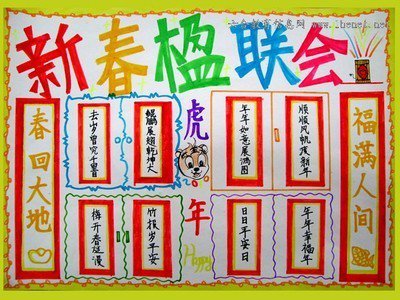 www.lhenet.net
新春楹联会
春回大地
展翅乾坤大
虎
年年如意展鸿图
顺顺风帆 新年
福满人间
梅开春
竹报岁平安
年
Happy
日日平安日
年年幸福年